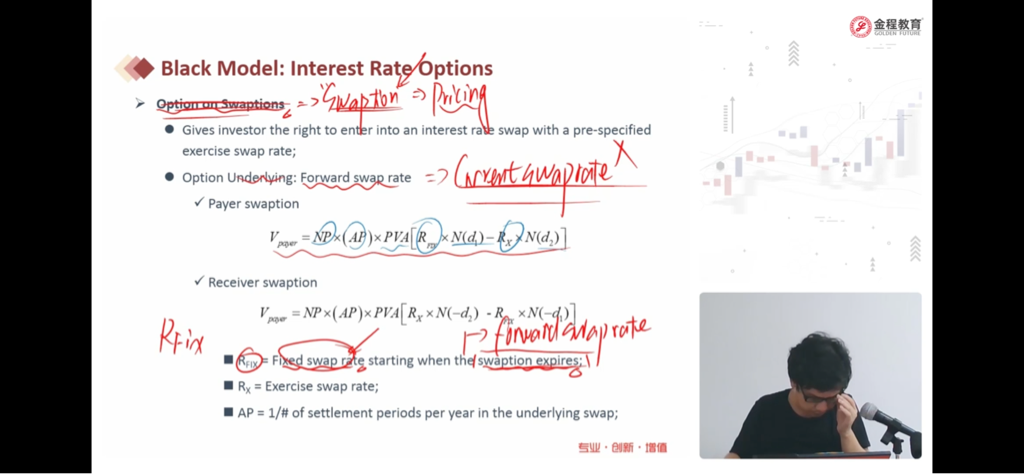 金程教育
GOLDEN FUTURE
Black Model: Interest Rate Options
Option on Swaptions => "Swaption" => Pricing
Gives investor the right to enter into an interest rate swap with a pre-specified
exercise swap rate;
Option Underlying: Forward swap rate => Current swap rate X
✓ Payer swaption
V_payer = NP×(AP)×PVA[R_FIX×N(d₁)−R_X×N(d₂)]
✓ Receiver swaption
V_payer = NP×(AP)×PVA[R_X×N(−d₂) - R_FIX×N(−d₁)]
RFix
Forward swap rate
R_FIX = Fixed swap rate starting when the swaption expires;
R_X = Exercise swap rate;
AP = 1/# of settlement periods per year in the underlying swap;
专业·创新·增值